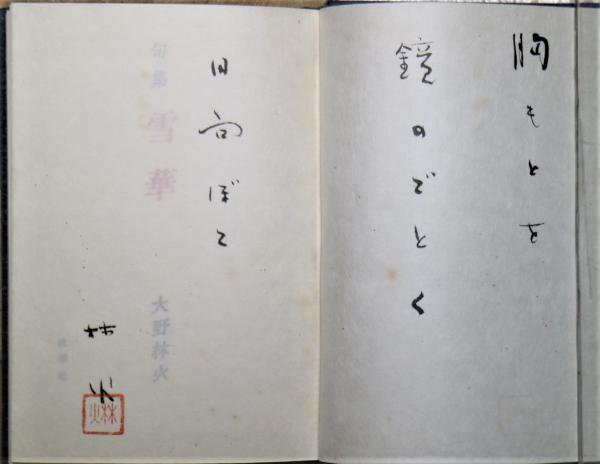 胸もとを
鏡のごとく
日向ぼこ
林火
林火
句集
雪華
大野林火